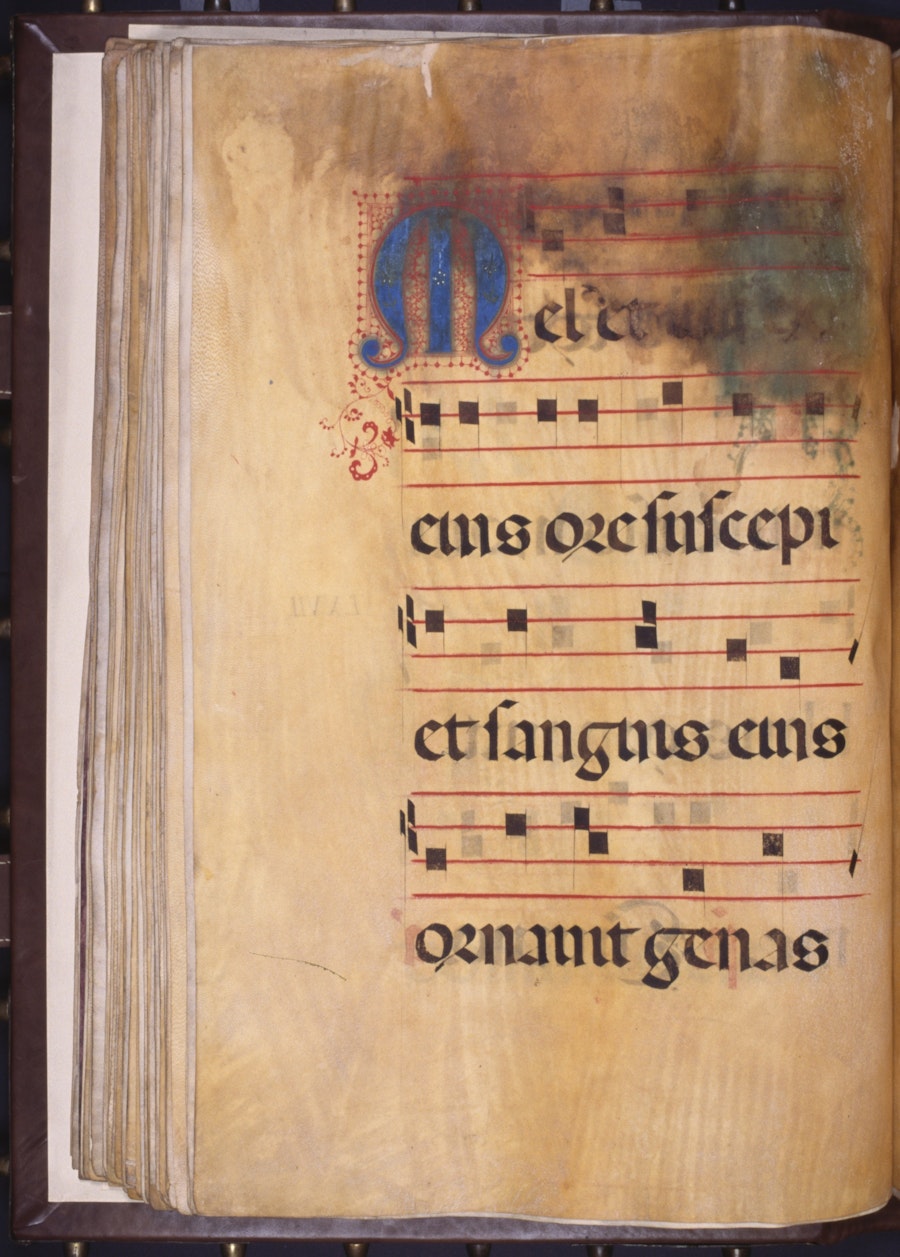 Mel et
eius ore suscepi
et sanguis eius
ornauit genas